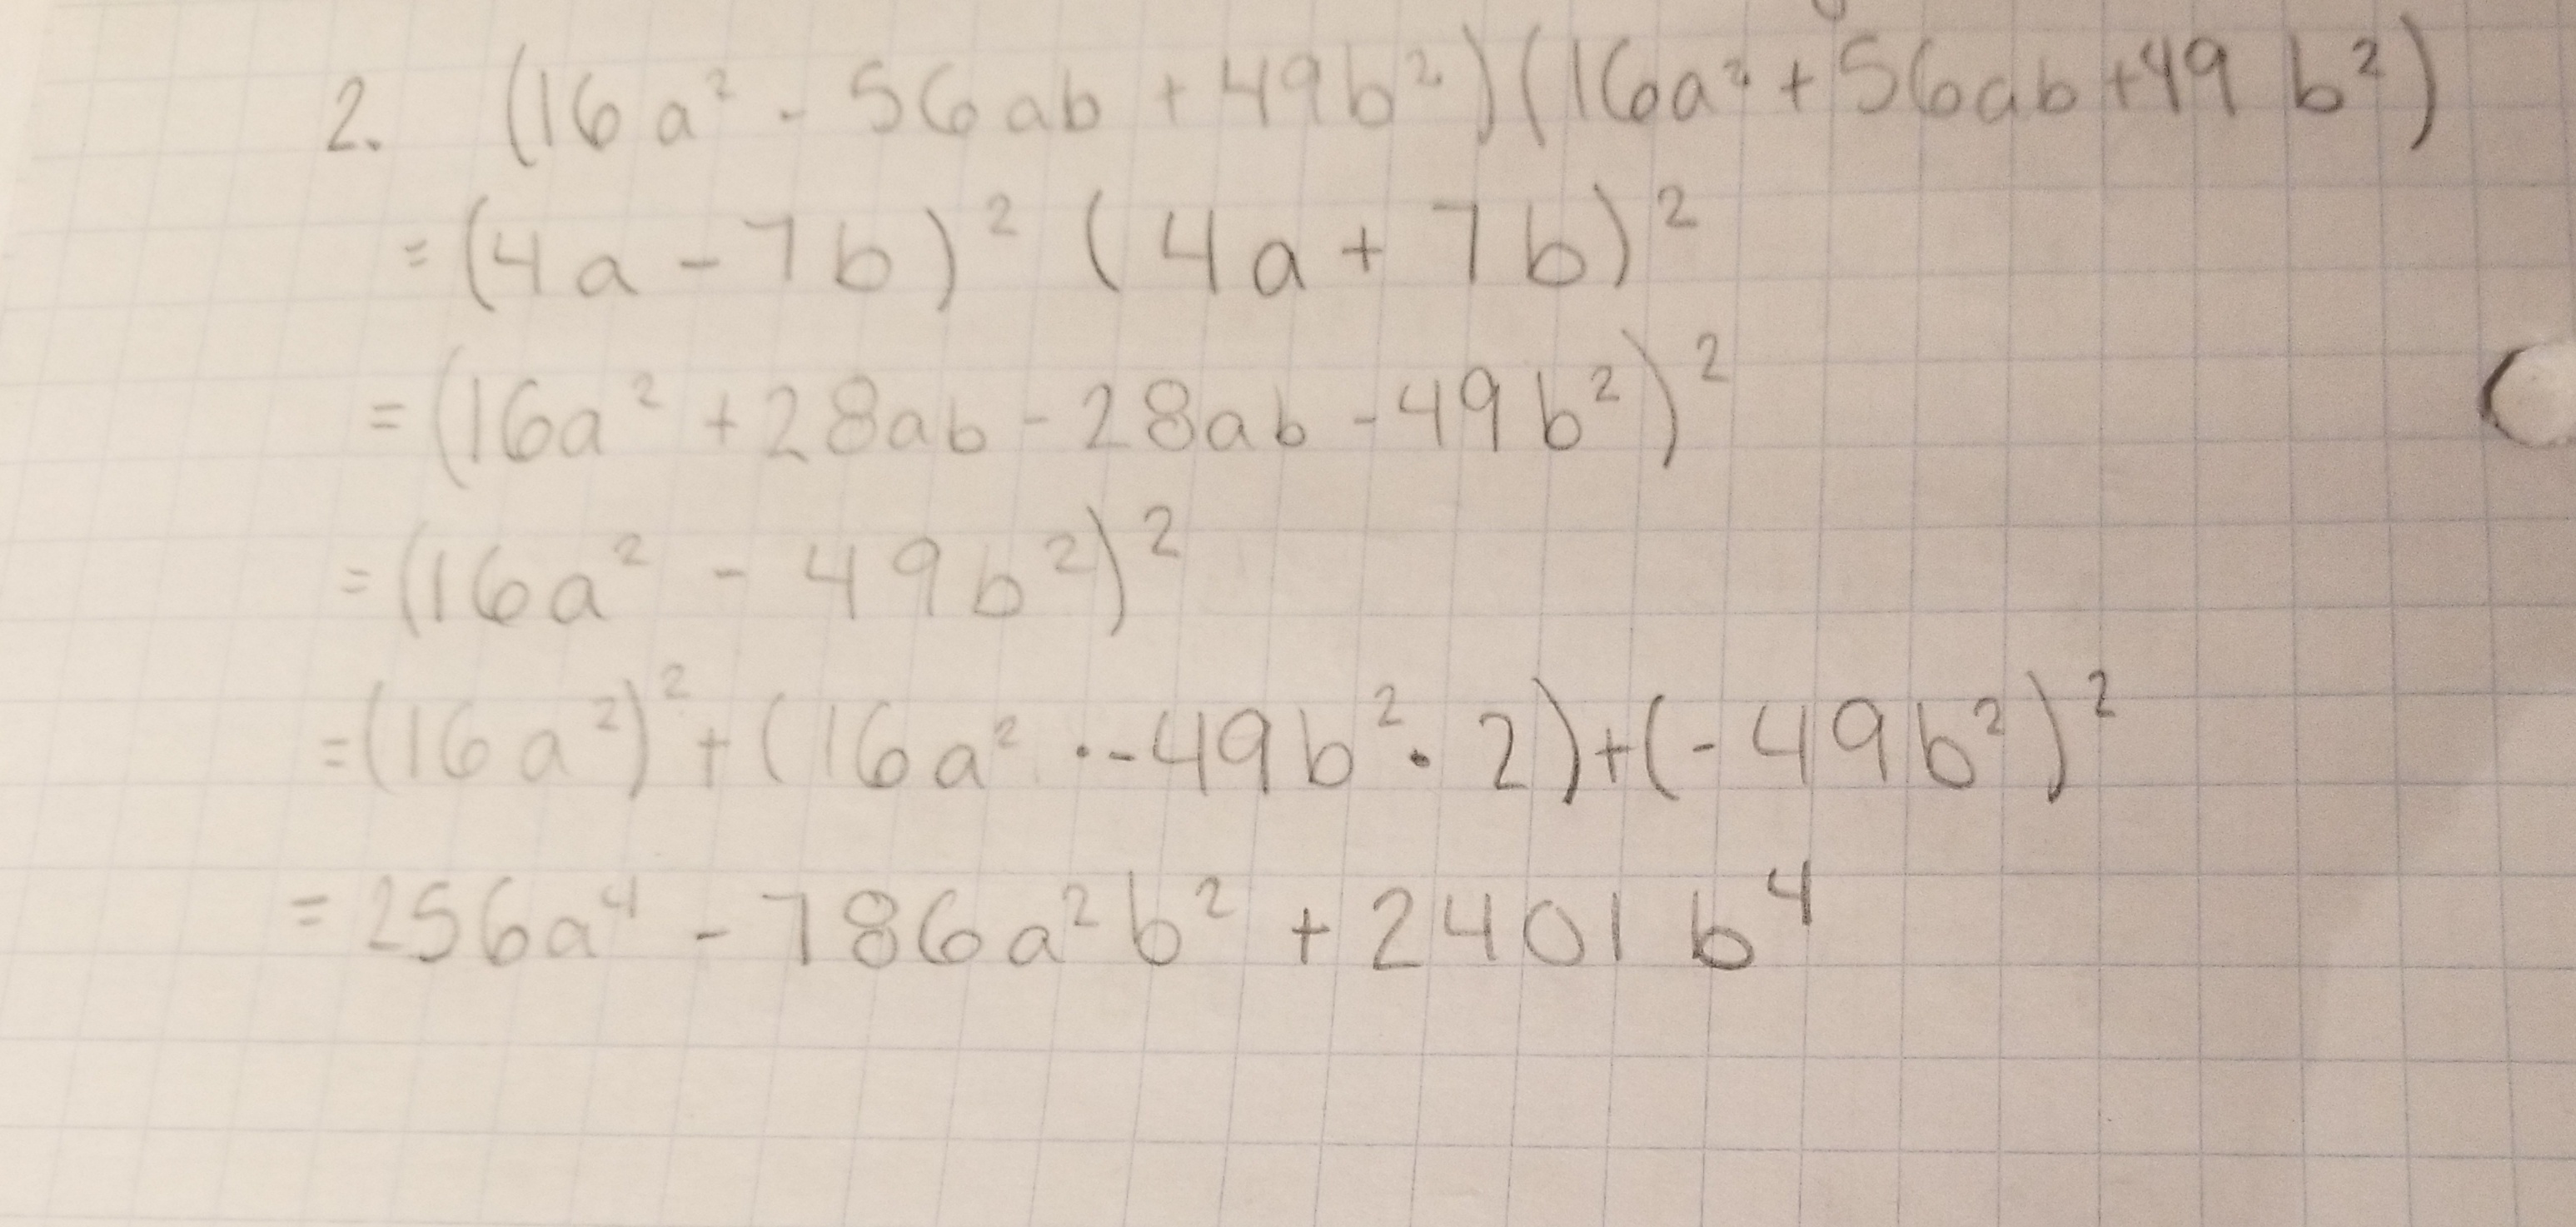 2. (16a² - 56ab + 49b²)(16a² + 56ab + 49b²)
= (4a - 7b)² (4a + 7b)²
= (16a² + 28ab - 28ab - 49b²)²
= (16a² - 49b²)²
= (16a²)² + (16a² · -49b² · 2) + (-49b²)²
= 256a⁴ - 786a²b² + 2401b⁴